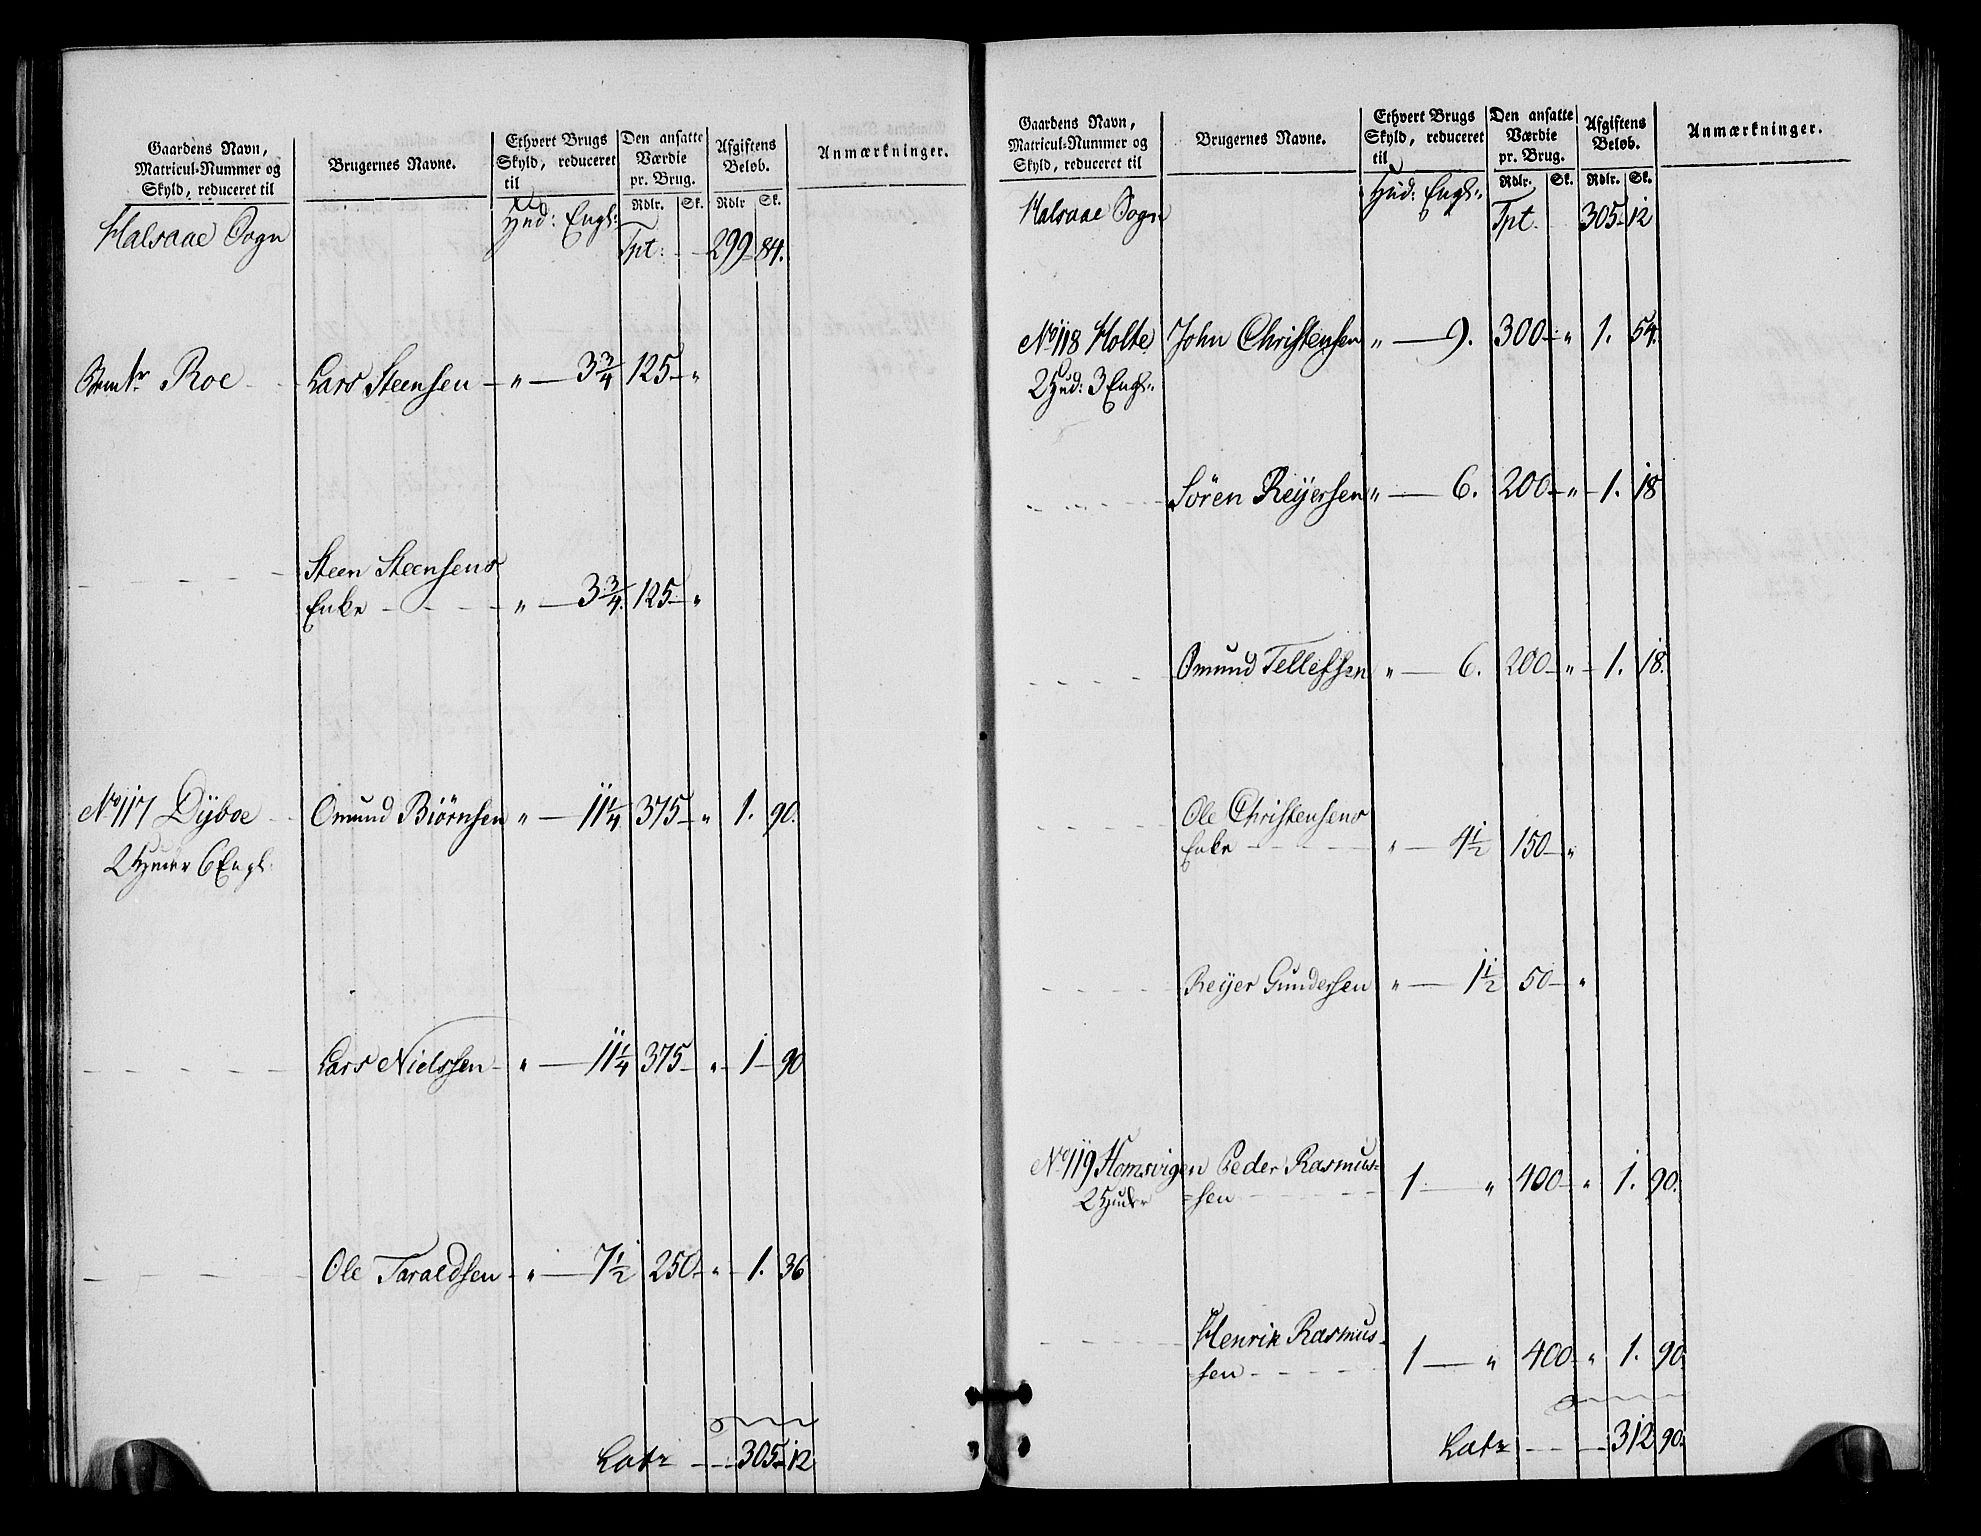 Gaardens Navn, Matricul-Nummer og Skyld, reduceret til | Brugernes Navne. | Ethvert Brugs Skyld, reduceret til | Den ansatte Værdie pr. Brug. | Afgiftens Beløb. | Anmærkninger.
Rdlr. Sk. Rdlr Sk.
Halsaae Sogn | Hud: Engl: | Tpt: | 299 84.
Roe | Lars Steensen | " 3 3/4 | 125 "
Steen Steensens
Enke | " 3 3/4 | 125 "
No 117 Dÿboe | Omund Biörnsen | " 11 1/4 | 375 " | 1. 90.
2 Huder 6 Engl:
Lars Nielssen | " 11 1/4 | 375 " | 1 90
Ole Taraldsen | " 7 1/2 | 250 " | 1. 36
Latr | 305 12
Gaardens Navn, Matricul-Nummer og Skyld, reduceret til | Brugernes Navne. | Ethvert Brugs Skyld, reduceret til | Den ansatte Værdie pr. Brug. | Afgiftens Beløb. | Anmærkninger.
Rdlr. Sk. Rdlr. Sk.
Halsaae Sogn | Hud: Engl: | Tpt. | 305 12
No 118 Holte | John Christensen | " 9. | 300 " | 1. 54.
2 Hud: 3 Engl:
Sören Reÿersen | " 6. | 200 " | 1. 18
Omund Tellefsen | " 6. | 200 " | 1. 18.
Ole Christensens
Enke | " 4 1/2 | 150 "
Reÿer Gundersen | " 1 1/2 | 50 "
No 119 Homsvigen | Peder Rasmus=
2 Huder | =sen | 1 " | 400 " | 1. 90.
Henrik Rasmus=
=sen | 1 " | 400 " | 1. 90.
Latr | 312 90.